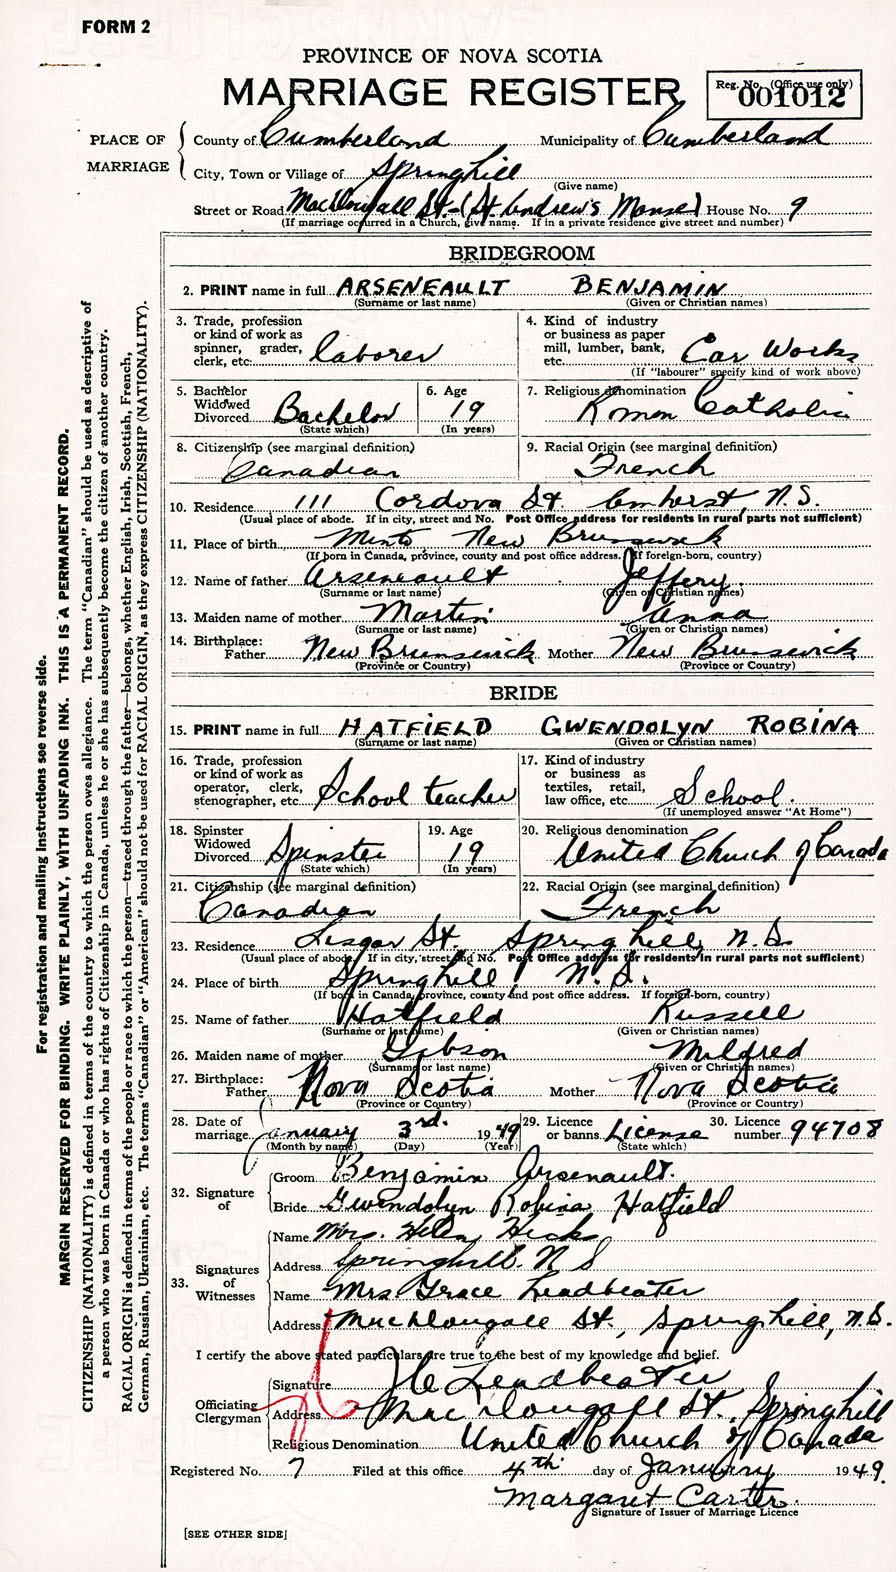 FORM 2
PROVINCE OF NOVA SCOTIA
MARRIAGE REGISTER
Reg. No. (Office use only)
001012
PLACE OF MARRIAGE
County of Cumberland Municipality of Cumberland
City, Town or Village of Springhill
(Give name)
Street or Road MacDougall St. (St. Andrew's Manse) House No. 9
(If marriage occurred in a Church, give name. If in a private residence give street and number)
BRIDEGROOM
2. PRINT name in full ARSENEAULT BENJAMIN
(Surname or last name) (Given or Christian names)
3. Trade, profession or kind of work as spinner, grader, clerk, etc. laborer
4. Kind of industry or business as paper mill, lumber, bank, etc. Car Works
(If "labourer" specify kind of work above)
5. Bachelor Widowed Divorced Bachelor
(State which)
6. Age 19
(In years)
7. Religious denomination Roman Catholic
8. Citizenship (see marginal definition) Canadian
9. Racial Origin (see marginal definition) French
10. Residence 111 Cordova St. Amherst, N.S.
(Usual place of abode. If in city, street and No. Post Office address for residents in rural parts not sufficient)
11. Place of birth Minto New Brunswick
(If born in Canada, province, county and post office address. If foreign-born, country)
12. Name of father Arseneault Jeffery
(Surname or last name) (Given or Christian names)
13. Maiden name of mother Martin Anna
(Surname or last name) (Given or Christian names)
14. Birthplace: Father New Brunswick Mother New Brunswick
(Province or Country) (Province or Country)
BRIDE
15. PRINT name in full HATFIELD GWENDOLYN ROBINA
(Surname or last name) (Given or Christian names)
16. Trade, profession or kind of work as operator, clerk, stenographer, etc. School teacher
17. Kind of industry or business as textiles, retail, law office, etc. School.
(If unemployed answer "At Home")
18. Spinster Widowed Divorced Spinster
(State which)
19. Age 19
(In years)
20. Religious denomination United Church of Canada
21. Citizenship (see marginal definition) Canadian
22. Racial Origin (see marginal definition) French
23. Residence Lisgar St. Springhill, N.S.
(Usual place of abode. If in city, street and No. Post Office address for residents in rural parts not sufficient)
24. Place of birth Springhill N.S.
(If born in Canada, province, county and post office address. If foreign-born, country)
25. Name of father Hatfield Russell
(Surname or last name) (Given or Christian names)
26. Maiden name of mother Gibson Mildred
(Surname or last name) (Given or Christian names)
27. Birthplace: Father Nova Scotia Mother Nova Scotia
(Province or Country) (Province or Country)
28. Date of marriage January 3rd. 1949
(Month by name) (Day) (Year)
29. Licence or banns License
(State which)
30. Licence number 94708
32. Signature of
Groom Benjamin Arsenault.
Bride Gwendolyn Robina Hatfield
33. Signatures of Witnesses
Name Mrs. Helen Hicks
Address Springhill. N S
Name Mrs Grace Leadbeater
Address MacDougall St., Springhill, N.S.
I certify the above stated particulars are true to the best of my knowledge and belief.
Officiating Clergyman
Signature Leadbeater
Address MacDougall St., Springhill
Religious Denomination United Church of Canada
Registered No. 7 Filed at this office 4th day of January 1949.
Margaret Carter.
Signature of Issuer of Marriage Licence
[SEE OTHER SIDE]
For registration and mailing instructions see reverse side.
MARGIN RESERVED FOR BINDING. WRITE PLAINLY, WITH UNFADING INK. THIS IS A PERMANENT RECORD.
CITIZENSHIP (NATIONALITY) is defined in terms of the country to which the person owes allegiance. The term "Canadian" should be used as descriptive of
a person who was born in Canada or who has rights of Citizenship in Canada, unless he or she has subsequently become the citizen of another country.
RACIAL ORIGIN is defined in terms of the people or race to which the person—traced through the father—belongs, whether English, Irish, Scottish, French,
German, Russian, Ukrainian, etc. The terms "Canadian" or "American" should not be used for RACIAL ORIGIN, as they express CITIZENSHIP (NATIONALITY).